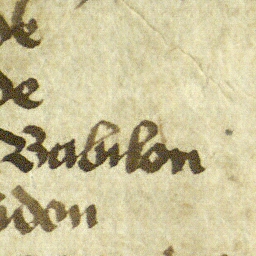 de
de
Babilon
iden